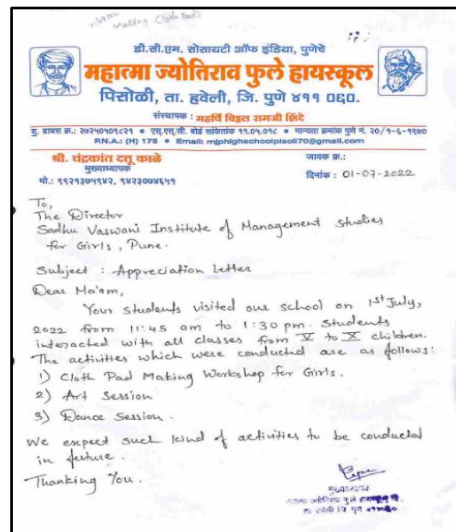 making Cloth Pads
डी.सी.एम. सोसायटी ऑफ इंडिया, पुणेचे
महात्मा ज्योतिराव फुले हायस्कूल
पिसोळी, ता. हवेली, जि. पुणे ४११ ०६०.
संस्थापक : महर्षि विठ्ठल रामजी शिंदे
यु. डायस क्र.: २७२५०५०९८२१ • एस.एस.सी. बोर्ड सांकेतांक ११.०५.०१८ • मान्यता क्रमांक पुणे नं. २०/१-६-१९७०
P.N.A.: (H) 175 • Email: mjphighschoolpisoli70@gmail.com
श्री. चंद्रकांत दत्तू काळे
मुख्याध्यापक
जावक क्र.:
मो.: ९९२१३७५९४२, ९४२३०७४६५१
दिनांक : 01-07-2022
To,
The Director
Sadhu Vaswani Institute of Management Studies
for Girls, Pune.
Subject : Appreciation Letter
Dear Ma'am,
Your students visited our school on 1st July,
2022 from 11:45 am to 1:30 pm. Students
interacted with all classes from V to X children.
The activities which were conducted are as follows:
1) Cloth Pad Making Workshop for Girls.
2) Art Session
3) Dance Session.
We expect such kind of activities to be conducted
in future.
Thanking You.
मुख्याध्यापक